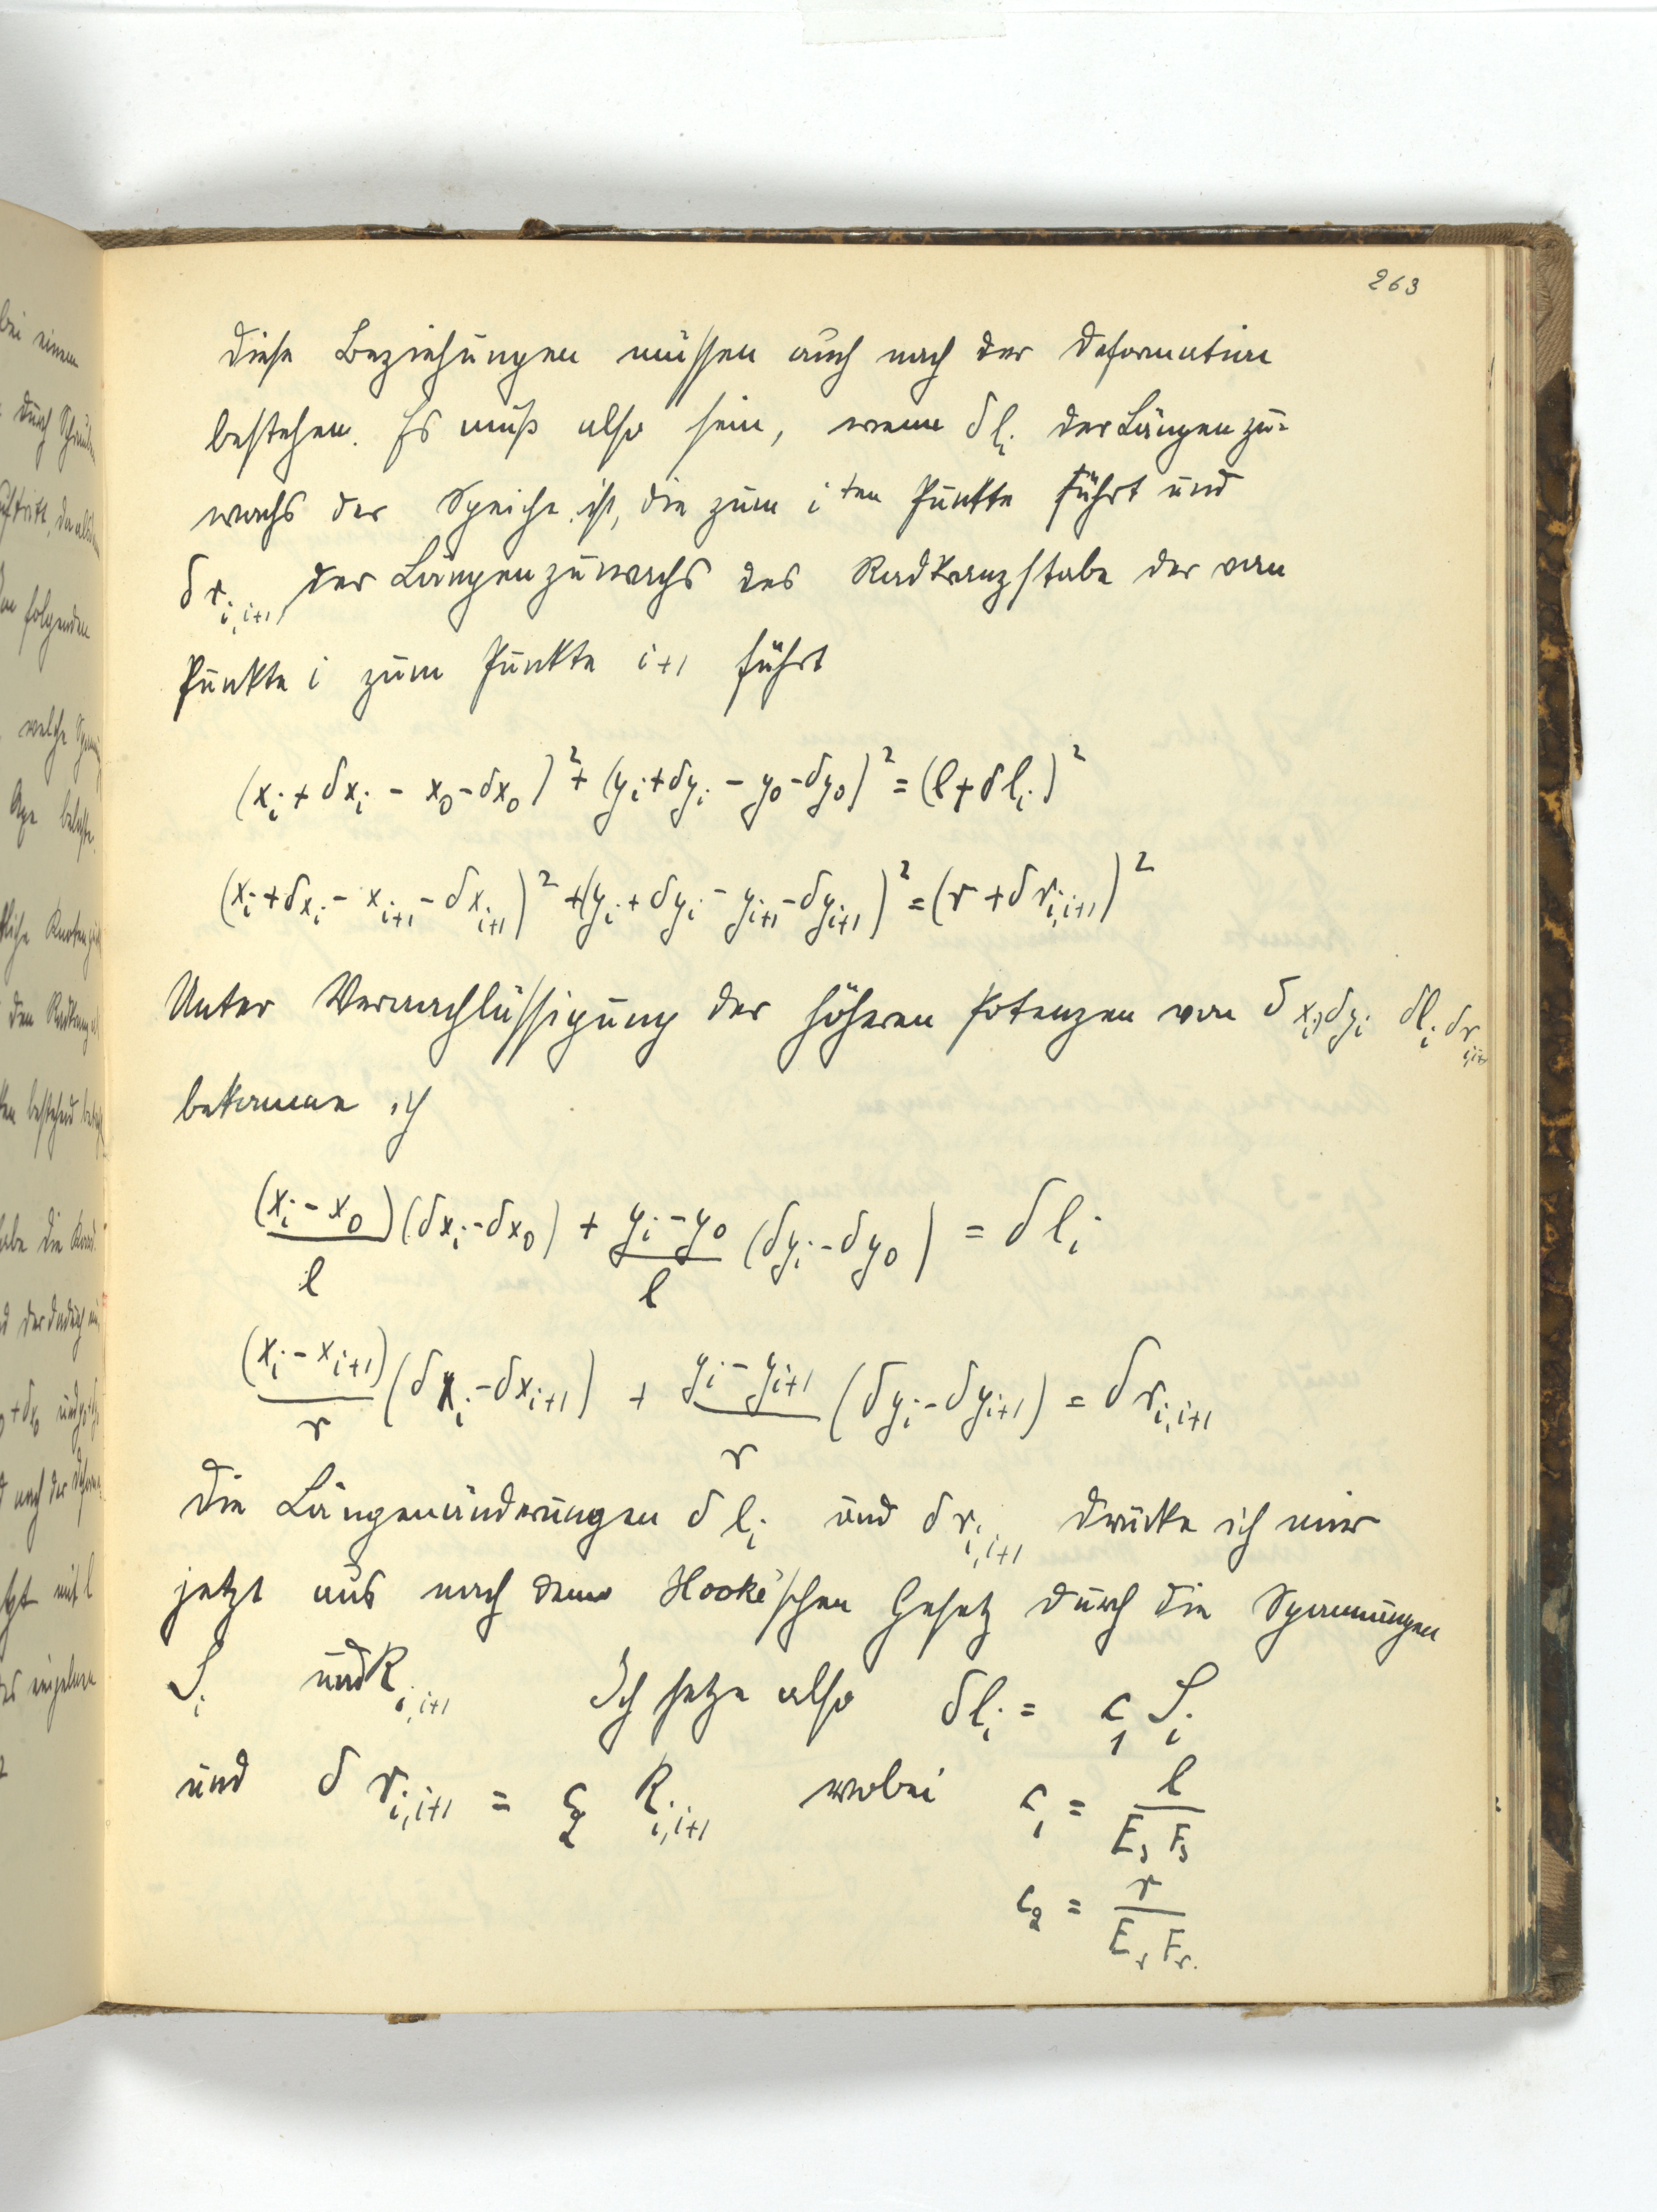 263
Diese Beziehungen müssen auch nach der Deformation
bestehen. Es muß also sein, wenn δl_i der Längenzu=
wachs der Speiche ist, die zum i ten Punkte führt und
δr_{i,i+1} der Längenzuwachs des Radkranzstabes der vom
Punkte i zum Punkte i+1 führt
(x_i + δx_i - x_0 - δx_0)^2 + (y_i + δy_i - y_0 - δy_0)^2 = (l + δl_i)^2
(x_i + δx_i - x_{i+1} - δx_{i+1})^2 + (y_i + δy_i - y_{i+1} - δy_{i+1})^2 = (r + δr_{i,i+1})^2
Unter Vernachlässigung der höheren Potenzen von δx_i, δy_i δl_i δr_{i,i+1}
bekomme ich
(x_i - x_0)/l (δx_i - δx_0) + (y_i - y_0)/l (δy_i - δy_0) = δl_i
(x_i - x_{i+1})/r (δx_i - δx_{i+1}) + (y_i - y_{i+1})/r (δy_i - δy_{i+1}) = δr_{i,i+1}
Die Längenänderungen δl_i und δr_{i,i+1} drücke ich mir
jetzt aus nach dem Hooke'schen Gesetz durch die Spannungen
S_i und R_{i,i+1} Ich setze also δl_i = c_1 S_i
und δr_{i,i+1} = c_2 R_{i,i+1} wobei c_1 = l/(E_s F_s)
c_2 = r/(E_r F_r).